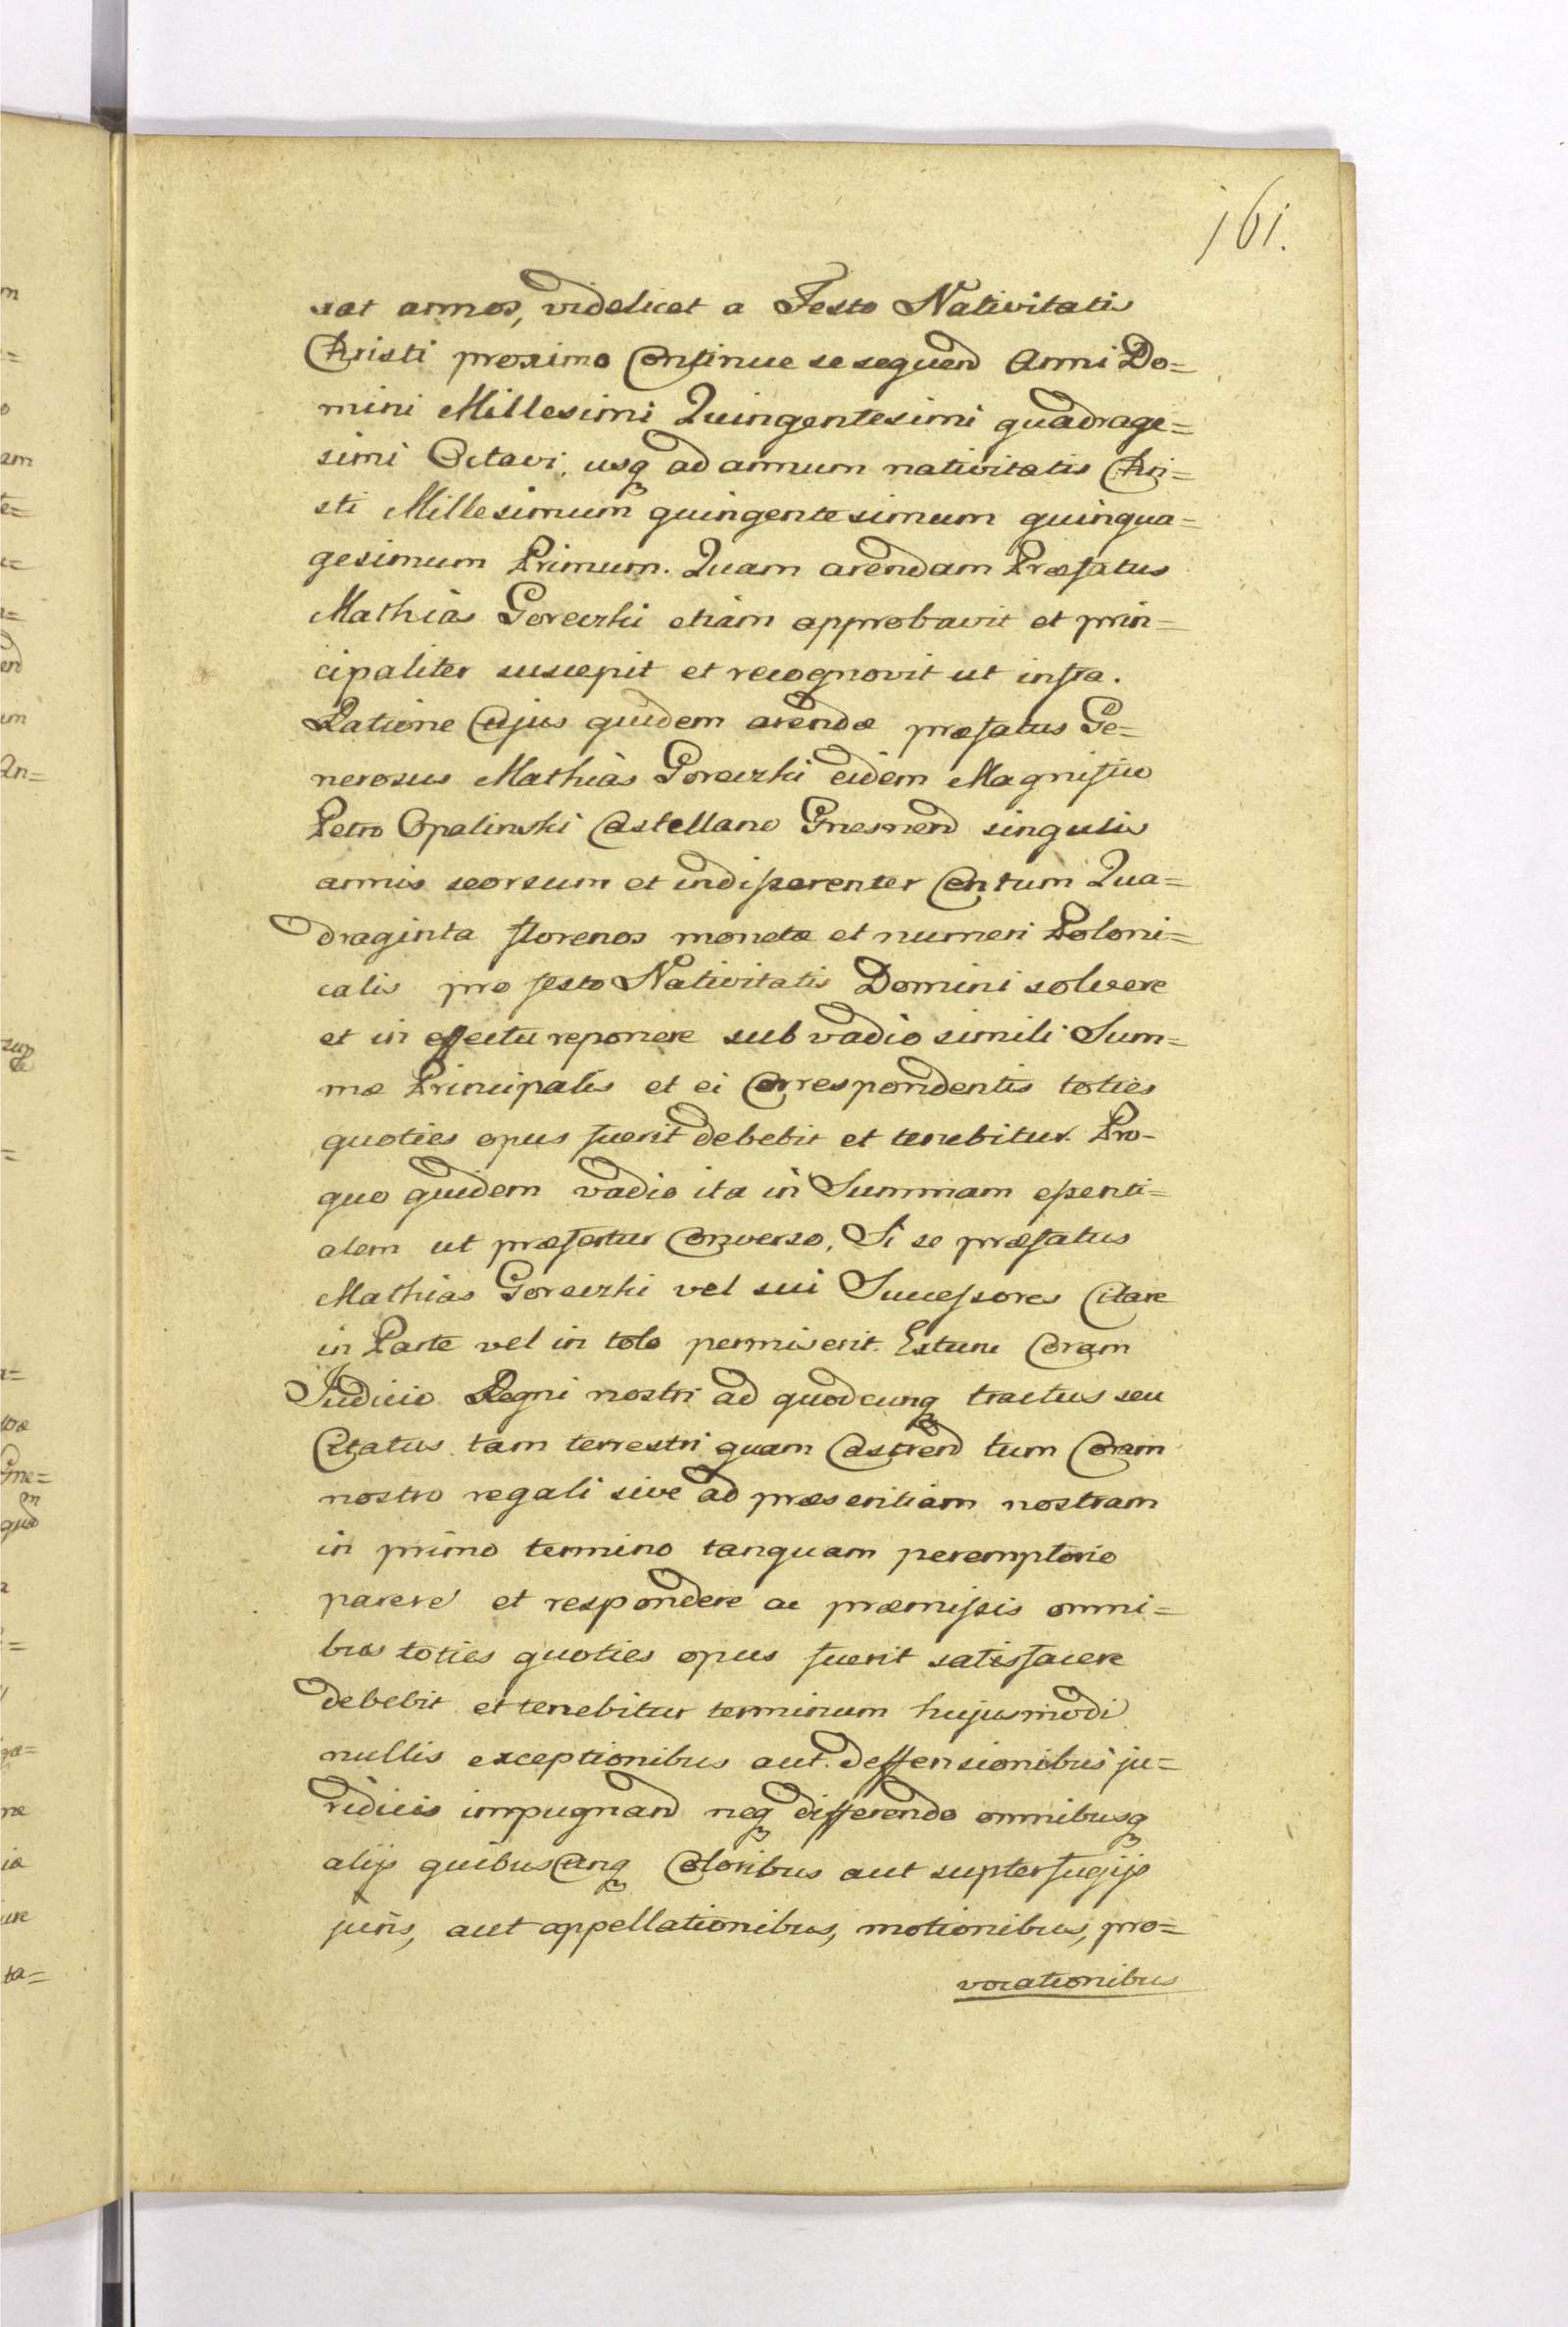 161.
rat annos, videlicet a Festo Nativitatis
Christi proximo Continue se sequend Anni Do=
mini Millesimi Quingentesimi quadrage=
simi Octavi usq ad annum nativitatis Chri=
sti Millesimum quingentesimum quinqua=
gesimum Primum. Quam arendam Præfatus
Mathias Goreczki etiam approbavit et prin=
cipaliter suscepit et recognovit ut infra.
Ratione Cujus quidem arendæ præfatus Ge=
nerosus Mathias Goreczki eidem Magnifico
Petro Opalinski Castellano Gnesnend singulis
annis seorsum et indifferenter Centum Qua=
draginta florenos monetæ et numeri Poloni=
calis pro festo Nativitatis Domini solvere
et in effectu reponere sub vadio simili Sum=
mæ Principalis et ei Correspondentis toties
quoties opus fuerit debebit et tenebitur. Pro-
quo quidem vadio ita in Summam essenti=
alem ut præfertur Converso, Si se præfatus
Mathias Goreczki vel sui Successores Citare
in Parte vel in toto permiserit. Extunc Coram
Judicio Regni nostri ad quodcunq tractus seu
Citatus tam terrestri quam Castrend tum Coram
nostro regali sive ad præsentiam nostram
in primo termino tanquam peremptorio
parere et respondere ac præmissis omni=
bus toties quoties opus fuerit satisfacere
debebit et tenebitur terminum hujusmodi
nullis exceptionibus aut deffensionibus ju=
ridicis impugnand neq differendo omnibusq
alijs quibuscunq Coloribus aut supterfugijs
juris, aut appellationibus, motionibus, pro=
vocationibus